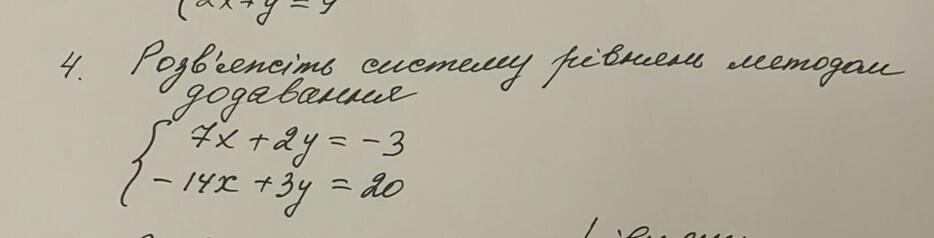 4. Розв'яжіть систему рівнянь методом
додавання
7x + 2y = -3
-14x + 3y = 20